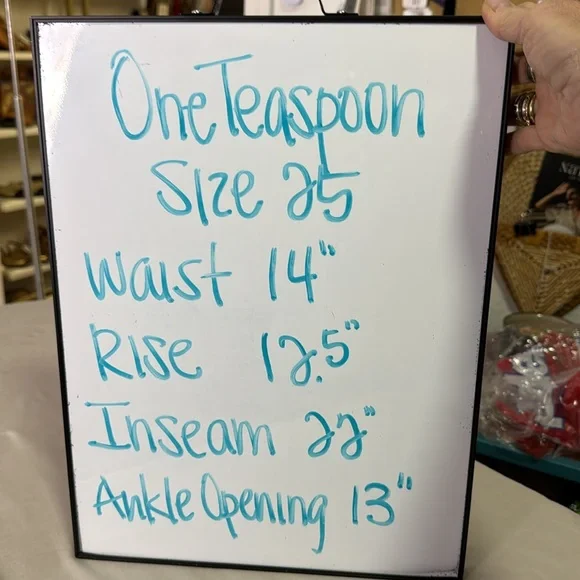 One Teaspoon
Size 25
Waist 14"
Rise 12.5"
Inseam 22"
Ankle Opening 13"